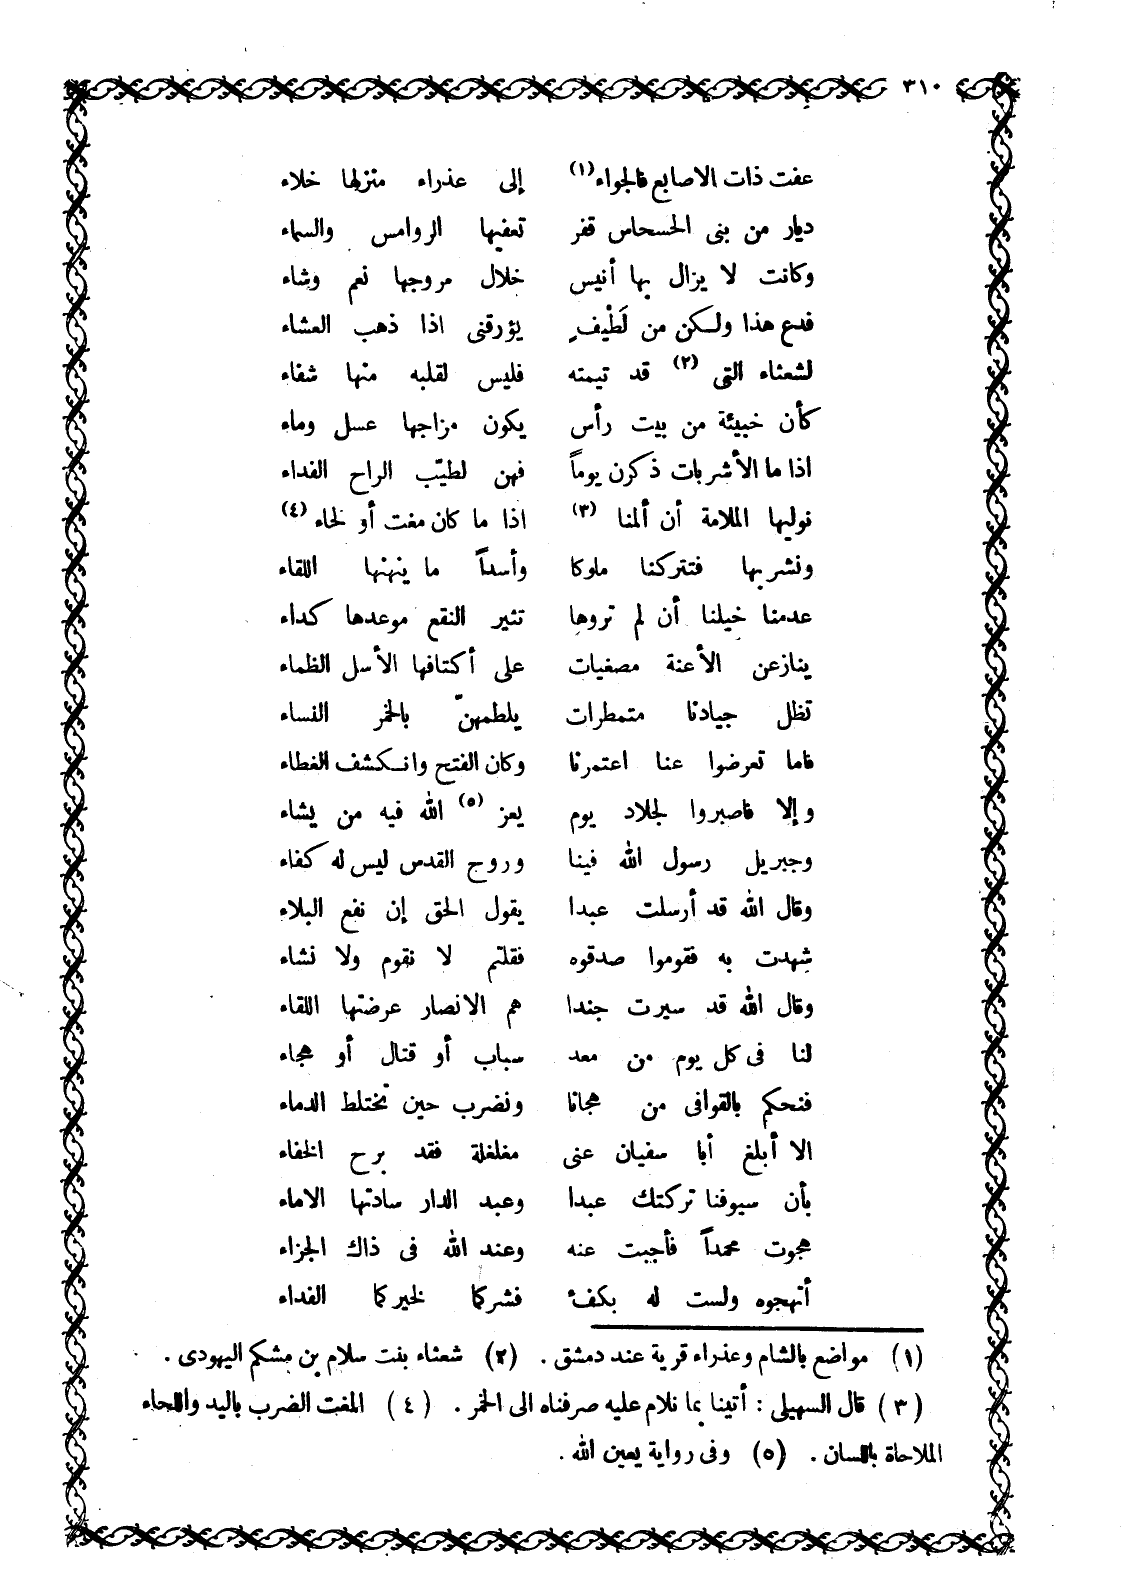 ٣١٠
عفت ذات الاصابع فالجواء (١) إلى عذراء منزلها خلاء
ديار من بنى الحسحاس قفر تعفيها الروامس والسماء
وكانت لا يزال بها أنيس خلال مروجها نعم وشاء
فدع هذا ولكن من لَطْيفٍ يؤرقنى اذا ذهب العشاء
لشعثاء التى (٢) قد تيمته فليس لقلبه منها شفاء
كأن خبيئة من بيت رأس يكون مزاجها عسل وماء
اذا ما الأشربات ذكرن يوماً فهن لطيّب الراح الفداء
نوليها الملامة أن ألمنا (٣) اذا ما كان مغث أو لحاء (٤)
ونشربها فتتركنا ملوكا وأسداً ما ينهنها اللقاء
عدمنا خيلنا أن لم تروها تثير النقع موعدها كداء
ينازعن الأعنة مصغيات على أكتافها الأسل الظماء
تظل جيادنا متمطرات يلطمهنّ بالخمر النساء
فاما تعرضوا عنا اعتمرنا وكان الفتح وانكشف الغطاء
وإلا فاصبروا لجلاد يوم يعز (٥) الله فيه من يشاء
وجبريل رسول الله فينا وروح القدس ليس له كفاء
وقال الله قد أرسلت عبدا يقول الحق إن نفع البلاء
شهدت به فقوموا صدقوه فقلتم لا نقوم ولا نشاء
وقال الله قد سيرت جندا هم الانصار عرضتها اللقاء
لنا فى كل يوم من معد سباب أو قتال أو هجاء
فنحكم بالقوافى من هجانا ونضرب حين تختلط الدماء
الا أبلغ أبا سفيان عنى مغلغلة فقد برح الخفاء
بأن سيوفنا تركتك عبدا وعبد الدار سادتها الاماء
هجوت محمداً فأجبت عنه وعند الله فى ذاك الجزاء
أتهجوه ولست له بكفء فشركما لخيركما الفداء
(١) مواضع بالشام وعذراء قرية عند دمشق . (٢) شعثاء بنت سلام بن مشكم اليهودى .
(٣) قال السهيلى : أتينا بما نلام عليه صرفناه الى الخمر . (٤) المغث الضرب باليد واللحاء
الملاحاة باللسان . (٥) وفى رواية يعين الله .